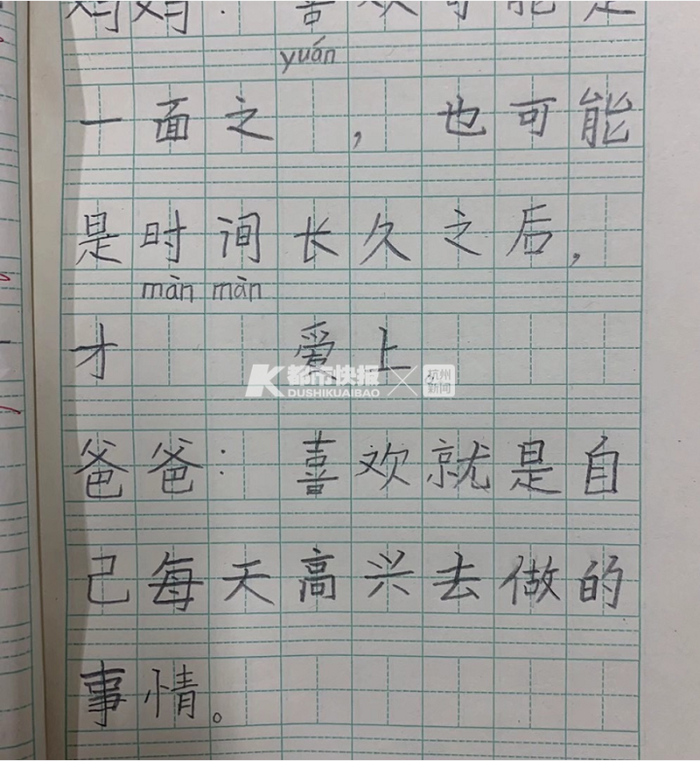 妈妈：喜欢可能是
yuán
一面之 ，也可能
是时间长久之后，
màn màn
才 爱上
都市快报 × 杭州新闻
DUSHIKUAIBAO
爸爸：喜欢就是自
己每天高兴去做的
事情。